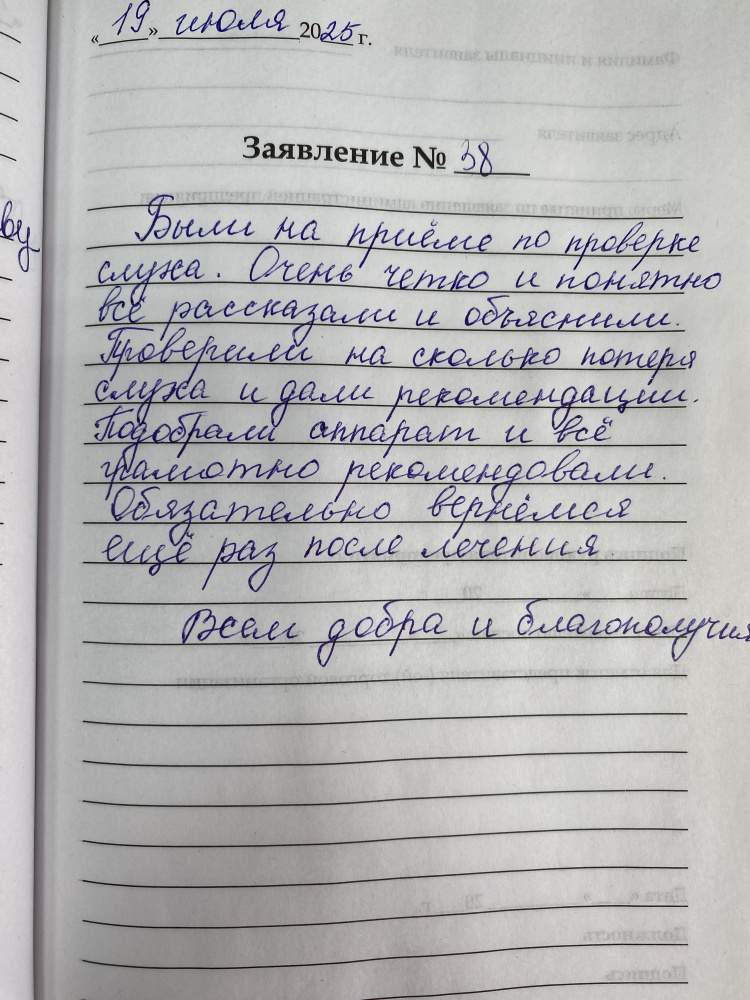 «19» июля 2025 г.
Заявление № 38
Были на приёме по проверке
слуха. Очень четко и понятно
всё рассказали и объяснили.
Проверили на сколько потеря
слуха и дали рекомендации.
Подобрали аппарат и всё
грамотно рекомендовали.
Обязательно вернёмся
ещё раз после лечения.
Всем добра и благополучия